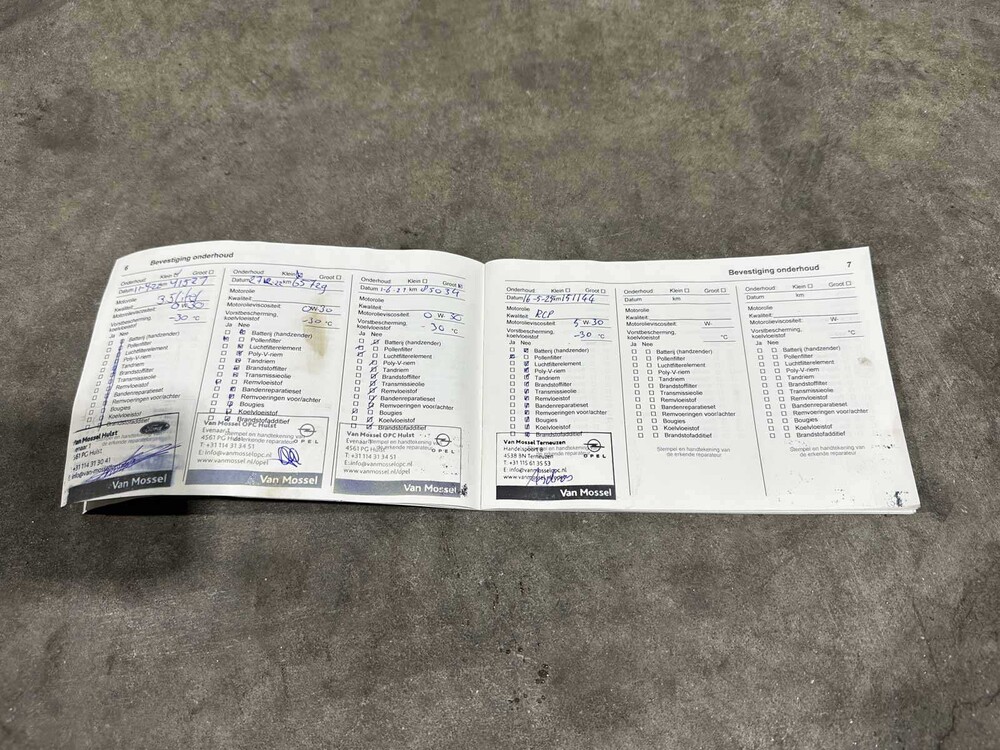 6 Bevestiging onderhoud
Onderhoud: Klein Groot
km 41527
Motorolie
Kwaliteit:
Motorolieviscositeit:
Vorstbescherming,
koelvloeistof -30 °C
Ja Nee
Batterij (handzender)
Pollenfilter
Luchtfilterelement
Poly-V-riem
Tandriem
Brandstoffilter
Transmissieolie
Remvloeistof
Bandenreparatieset
Remvoeringen voor/achter
Bougies
Koelvloeistof
Van Mossel Hulst
+31 114 31 30 41
Van Mossel
Onderhoud: Klein Groot
Datum km
Motorolie
Kwaliteit:
Motorolieviscositeit: 0 W 30
Vorstbescherming,
koelvloeistof -30 °C
Ja Nee
Batterij (handzender)
Pollenfilter
Luchtfilterelement
Poly-V-riem
Tandriem
Brandstoffilter
Transmissieolie
Remvloeistof
Bandenreparatieset
Remvoeringen voor/achter
Bougies
Koelvloeistof
Brandstofadditief
Van Mossel OPC Hulst
4561 PG Hulst
T: +31 114 31 34 51
E: info@vanmosselopc.nl
www.vanmossel.nl/opel
OPEL
Van Mossel
Onderhoud: Klein Groot
Datum 1-6- km 85034
Motorolie
Kwaliteit:
Motorolieviscositeit: 0 W 30
Vorstbescherming,
koelvloeistof -30 °C
Ja Nee
Batterij (handzender)
Pollenfilter
Luchtfilterelement
Poly-V-riem
Tandriem
Brandstoffilter
Transmissieolie
Remvloeistof
Bandenreparatieset
Remvoeringen voor/achter
Bougies
Koelvloeistof
Brandstofadditief
Van Mossel OPC Hulst
4561 PG Hulst
T: +31 114 31 34 51
E: info@vanmosselopc.nl
www.vanmossel.nl/opel
OPEL
Van Mossel
Bevestiging onderhoud 7
Onderhoud: Klein Groot
Datum 16-5-25 km 151144
Motorolie
Kwaliteit: RCP
Motorolieviscositeit: 5 W 30
Vorstbescherming,
koelvloeistof -30 °C
Ja Nee
Batterij (handzender)
Pollenfilter
Luchtfilterelement
Poly-V-riem
Tandriem
Brandstoffilter
Transmissieolie
Remvloeistof
Bandenreparatieset
Remvoeringen voor/achter
Bougies
Koelvloeistof
Brandstofadditief
Van Mossel Terneuzen
Handelspoort 8
4538 BN Terneuzen
T: +31 115 61 35 53
E: info@vanmosselopc.nl
www.vanmossel.nl/opel
OPEL
Van Mossel
Onderhoud: Klein Groot
Datum km
Motorolie
Kwaliteit:
Motorolieviscositeit: W-
Vorstbescherming,
koelvloeistof °C
Ja Nee
Batterij (handzender)
Pollenfilter
Luchtfilterelement
Poly-V-riem
Tandriem
Brandstoffilter
Transmissieolie
Remvloeistof
Bandenreparatieset
Remvoeringen voor/achter
Bougies
Koelvloeistof
Brandstofadditief
Stempel en handtekening van
de erkende reparateur
Onderhoud: Klein Groot
Datum km
Motorolie
Kwaliteit:
Motorolieviscositeit: W-
Vorstbescherming,
koelvloeistof °C
Ja Nee
Batterij (handzender)
Pollenfilter
Luchtfilterelement
Poly-V-riem
Tandriem
Brandstoffilter
Transmissieolie
Remvloeistof
Bandenreparatieset
Remvoeringen voor/achter
Bougies
Koelvloeistof
Brandstofadditief
Stempel en handtekening van
de erkende reparateur